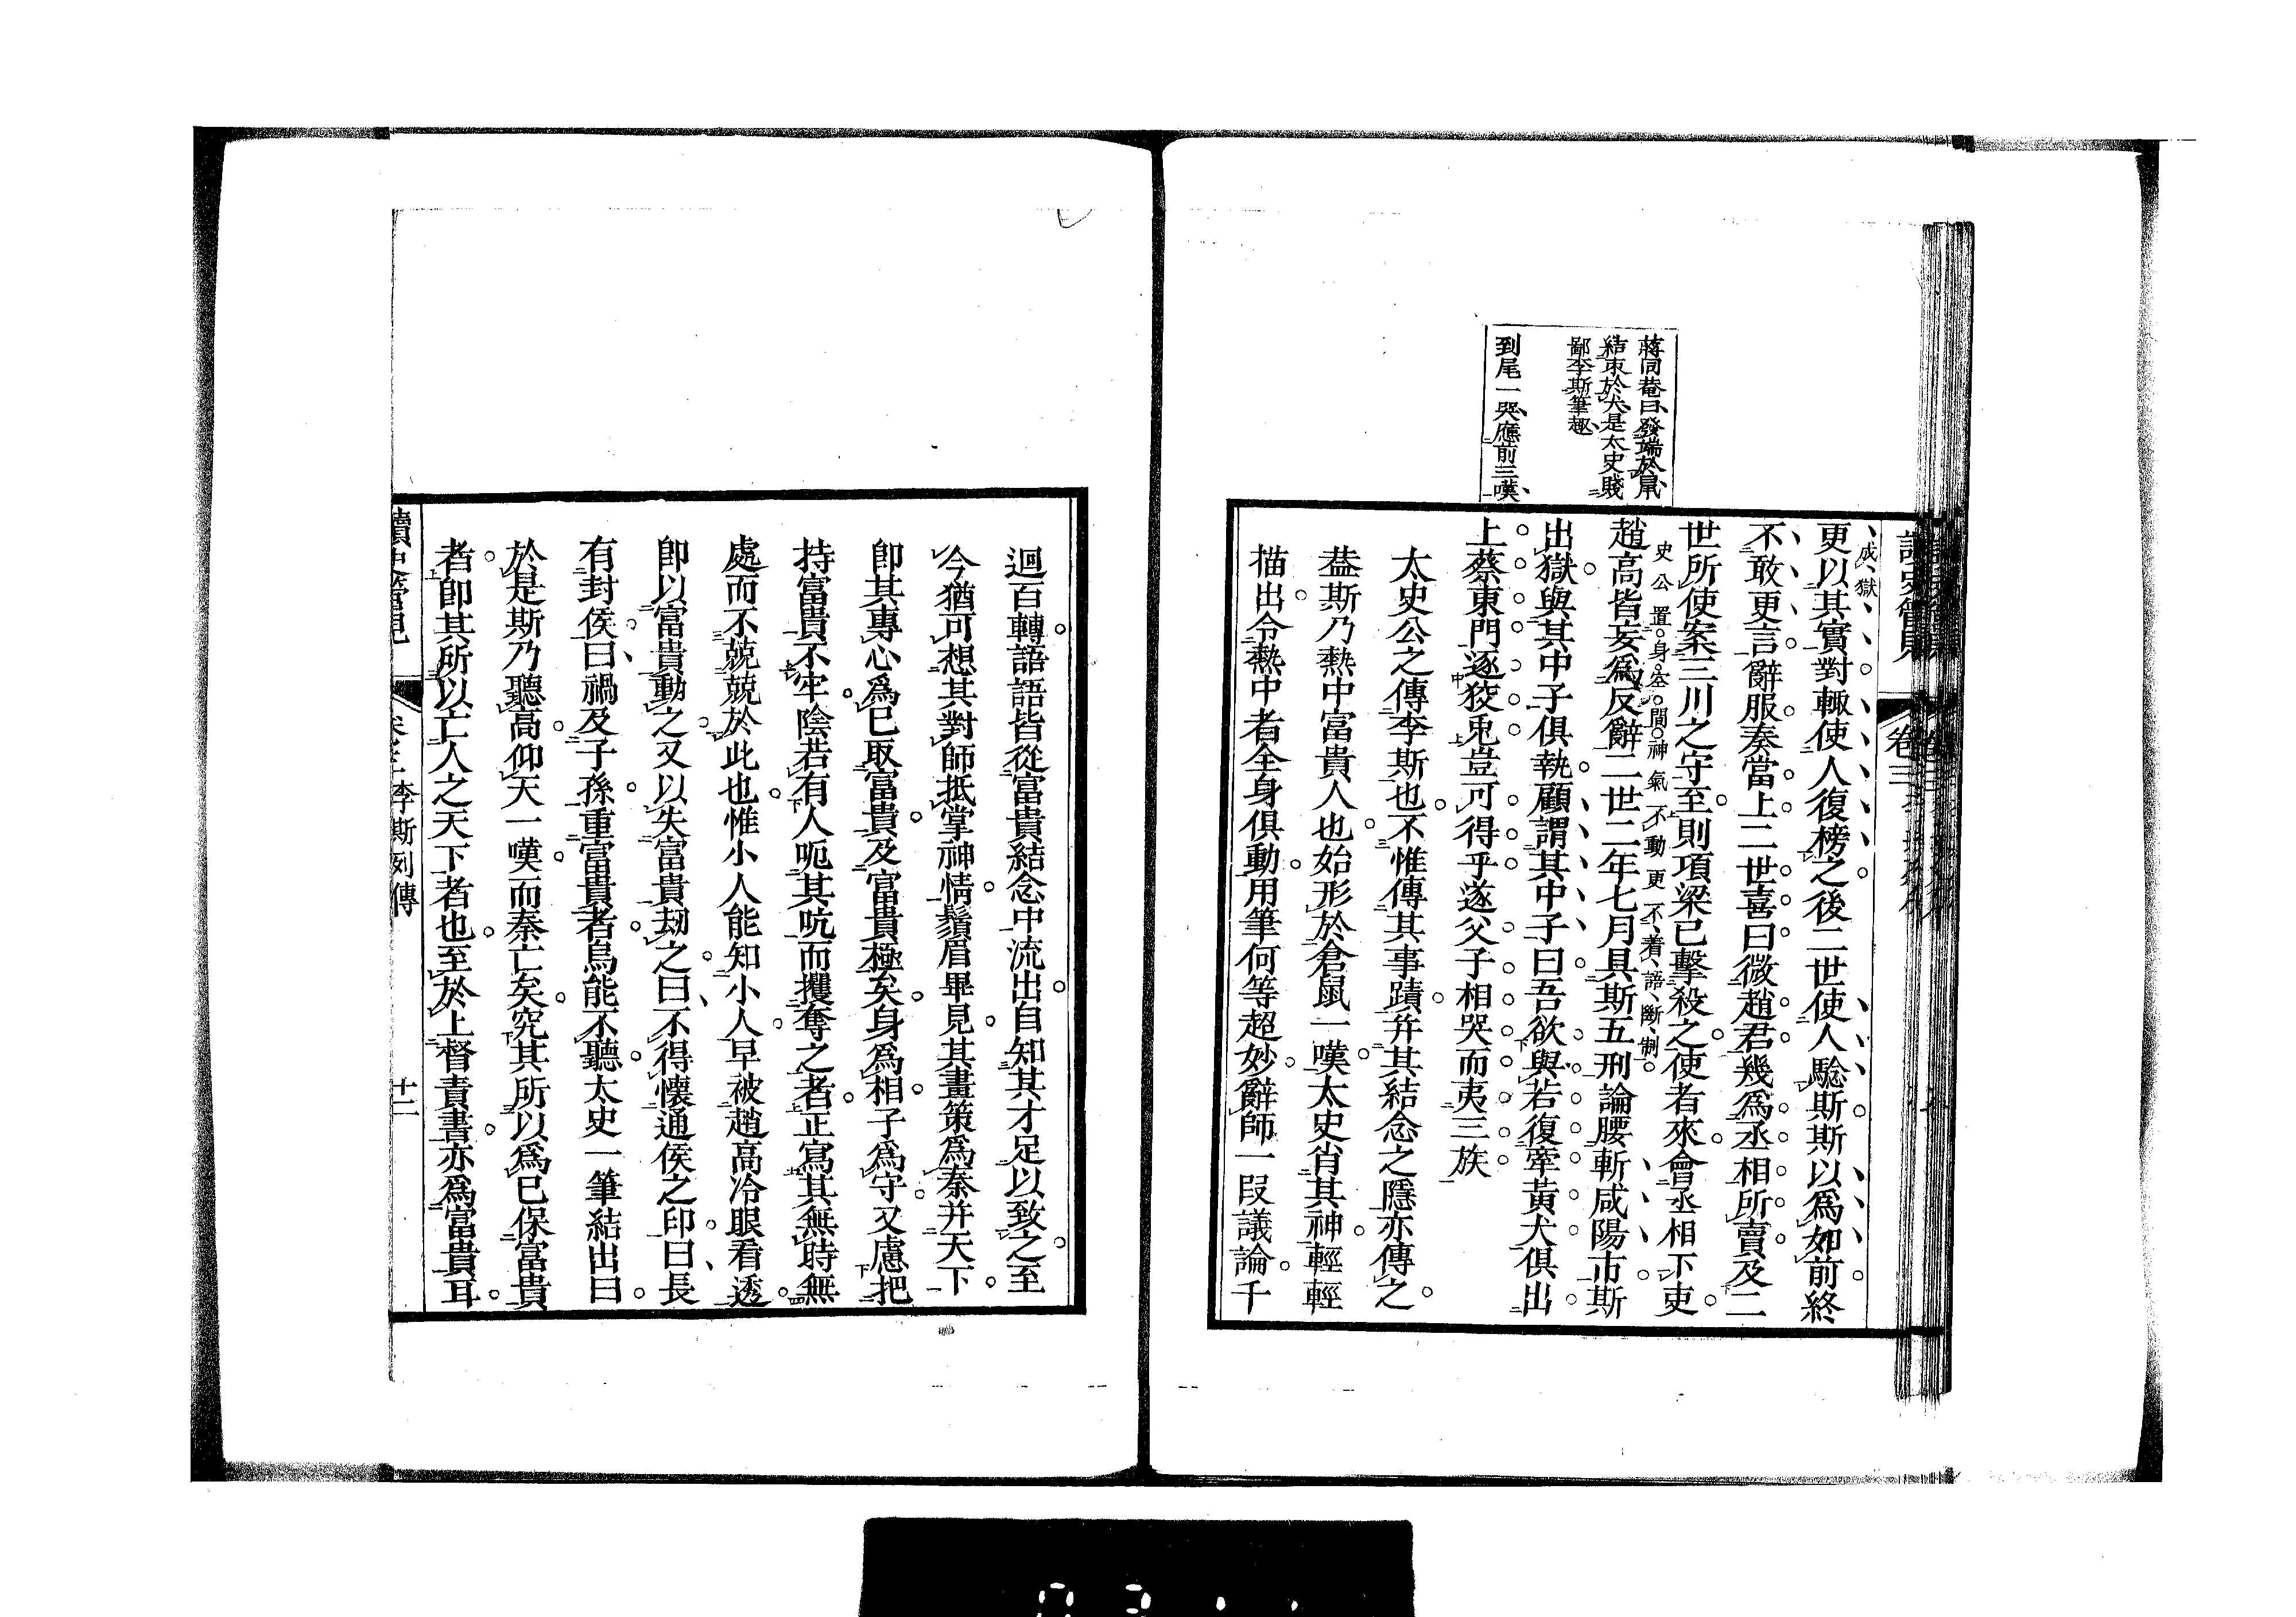 蔣同菴曰發端於鼠
結束於犬是太史賤
鄙李斯筆趣
到尾一哭應前三嘆
成獄
更以其實對輙使人復榜之後二世使人驗斯斯以爲如前終
不敢更言辭服奏當上二世喜曰微趙君幾爲丞相所賣及二
世所使案三川之守至則項梁已擊殺之使者來會丞相下吏
史公置身空間神氣不動更不着語斷制
趙高皆妄爲反辭二世二年七月具斯五刑論腰斬咸陽市斯
出獄與其中子俱執顧謂其中子曰吾欲與若復牽黃犬俱出
上蔡東門逐狡兎豈可得乎遂父子相哭而夷三族
太史公之傳李斯也不惟傳其事蹟幷其結念之隱亦傳之
葢斯乃熱中富貴人也始形於倉鼠一嘆太史肖其神輕輕
描出令熱中者全身俱動用筆何等超妙辭師一段議論千
卷三
迴百轉語語皆從富貴結念中流出自知其才足以致之至
今猶可想其對師抵掌神情鬚眉畢見其畫策爲秦幷天下
卽其專心爲巳取富貴及富貴極矣身爲相子爲守又慮把
持富貴不牢陰若有人呃其吭而攫奪之者正寫其無時無
處而不兢兢於此也惟小人能知小人早被趙高冷眼看透
卽以富貴動之又以失富貴刼之曰不得懷通侯之印曰長
有封侯曰禍及子孫重富貴者烏能不聽太史一筆結出曰
於是斯乃聽高仰天一嘆而秦亡矣究其所以爲巳保富貴
者卽其所以亡人之天下者也至於上督責書亦爲富貴耳
讀史管見 卷三 李斯列傳 十二